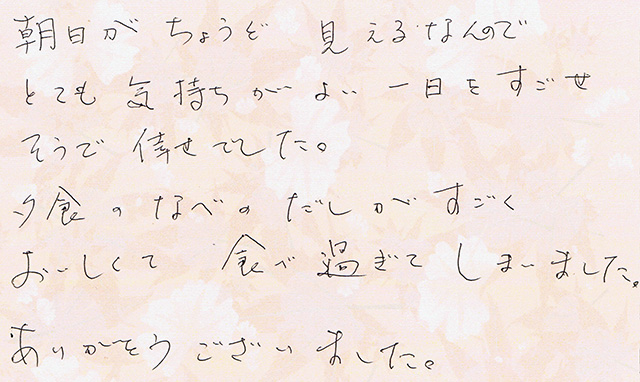 朝日が ちょうど 見えるなんので
とても 気持ちが よい 一日をすごせ
そうで 倖せでした。
夕食のなべのだしがすごく
おいしくて 食べ過ぎてしまいました。
ありがとうございました。